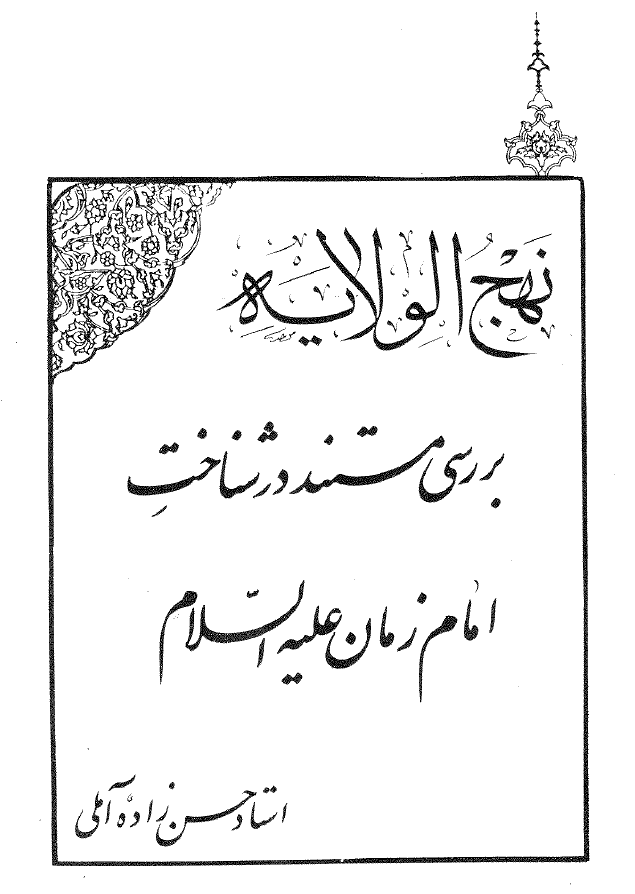 نَهْجُ الْوِلَایَه
بررسی مستند در شناختِ
امام زمان علیه السّلام
استاد حسن زاده آملی